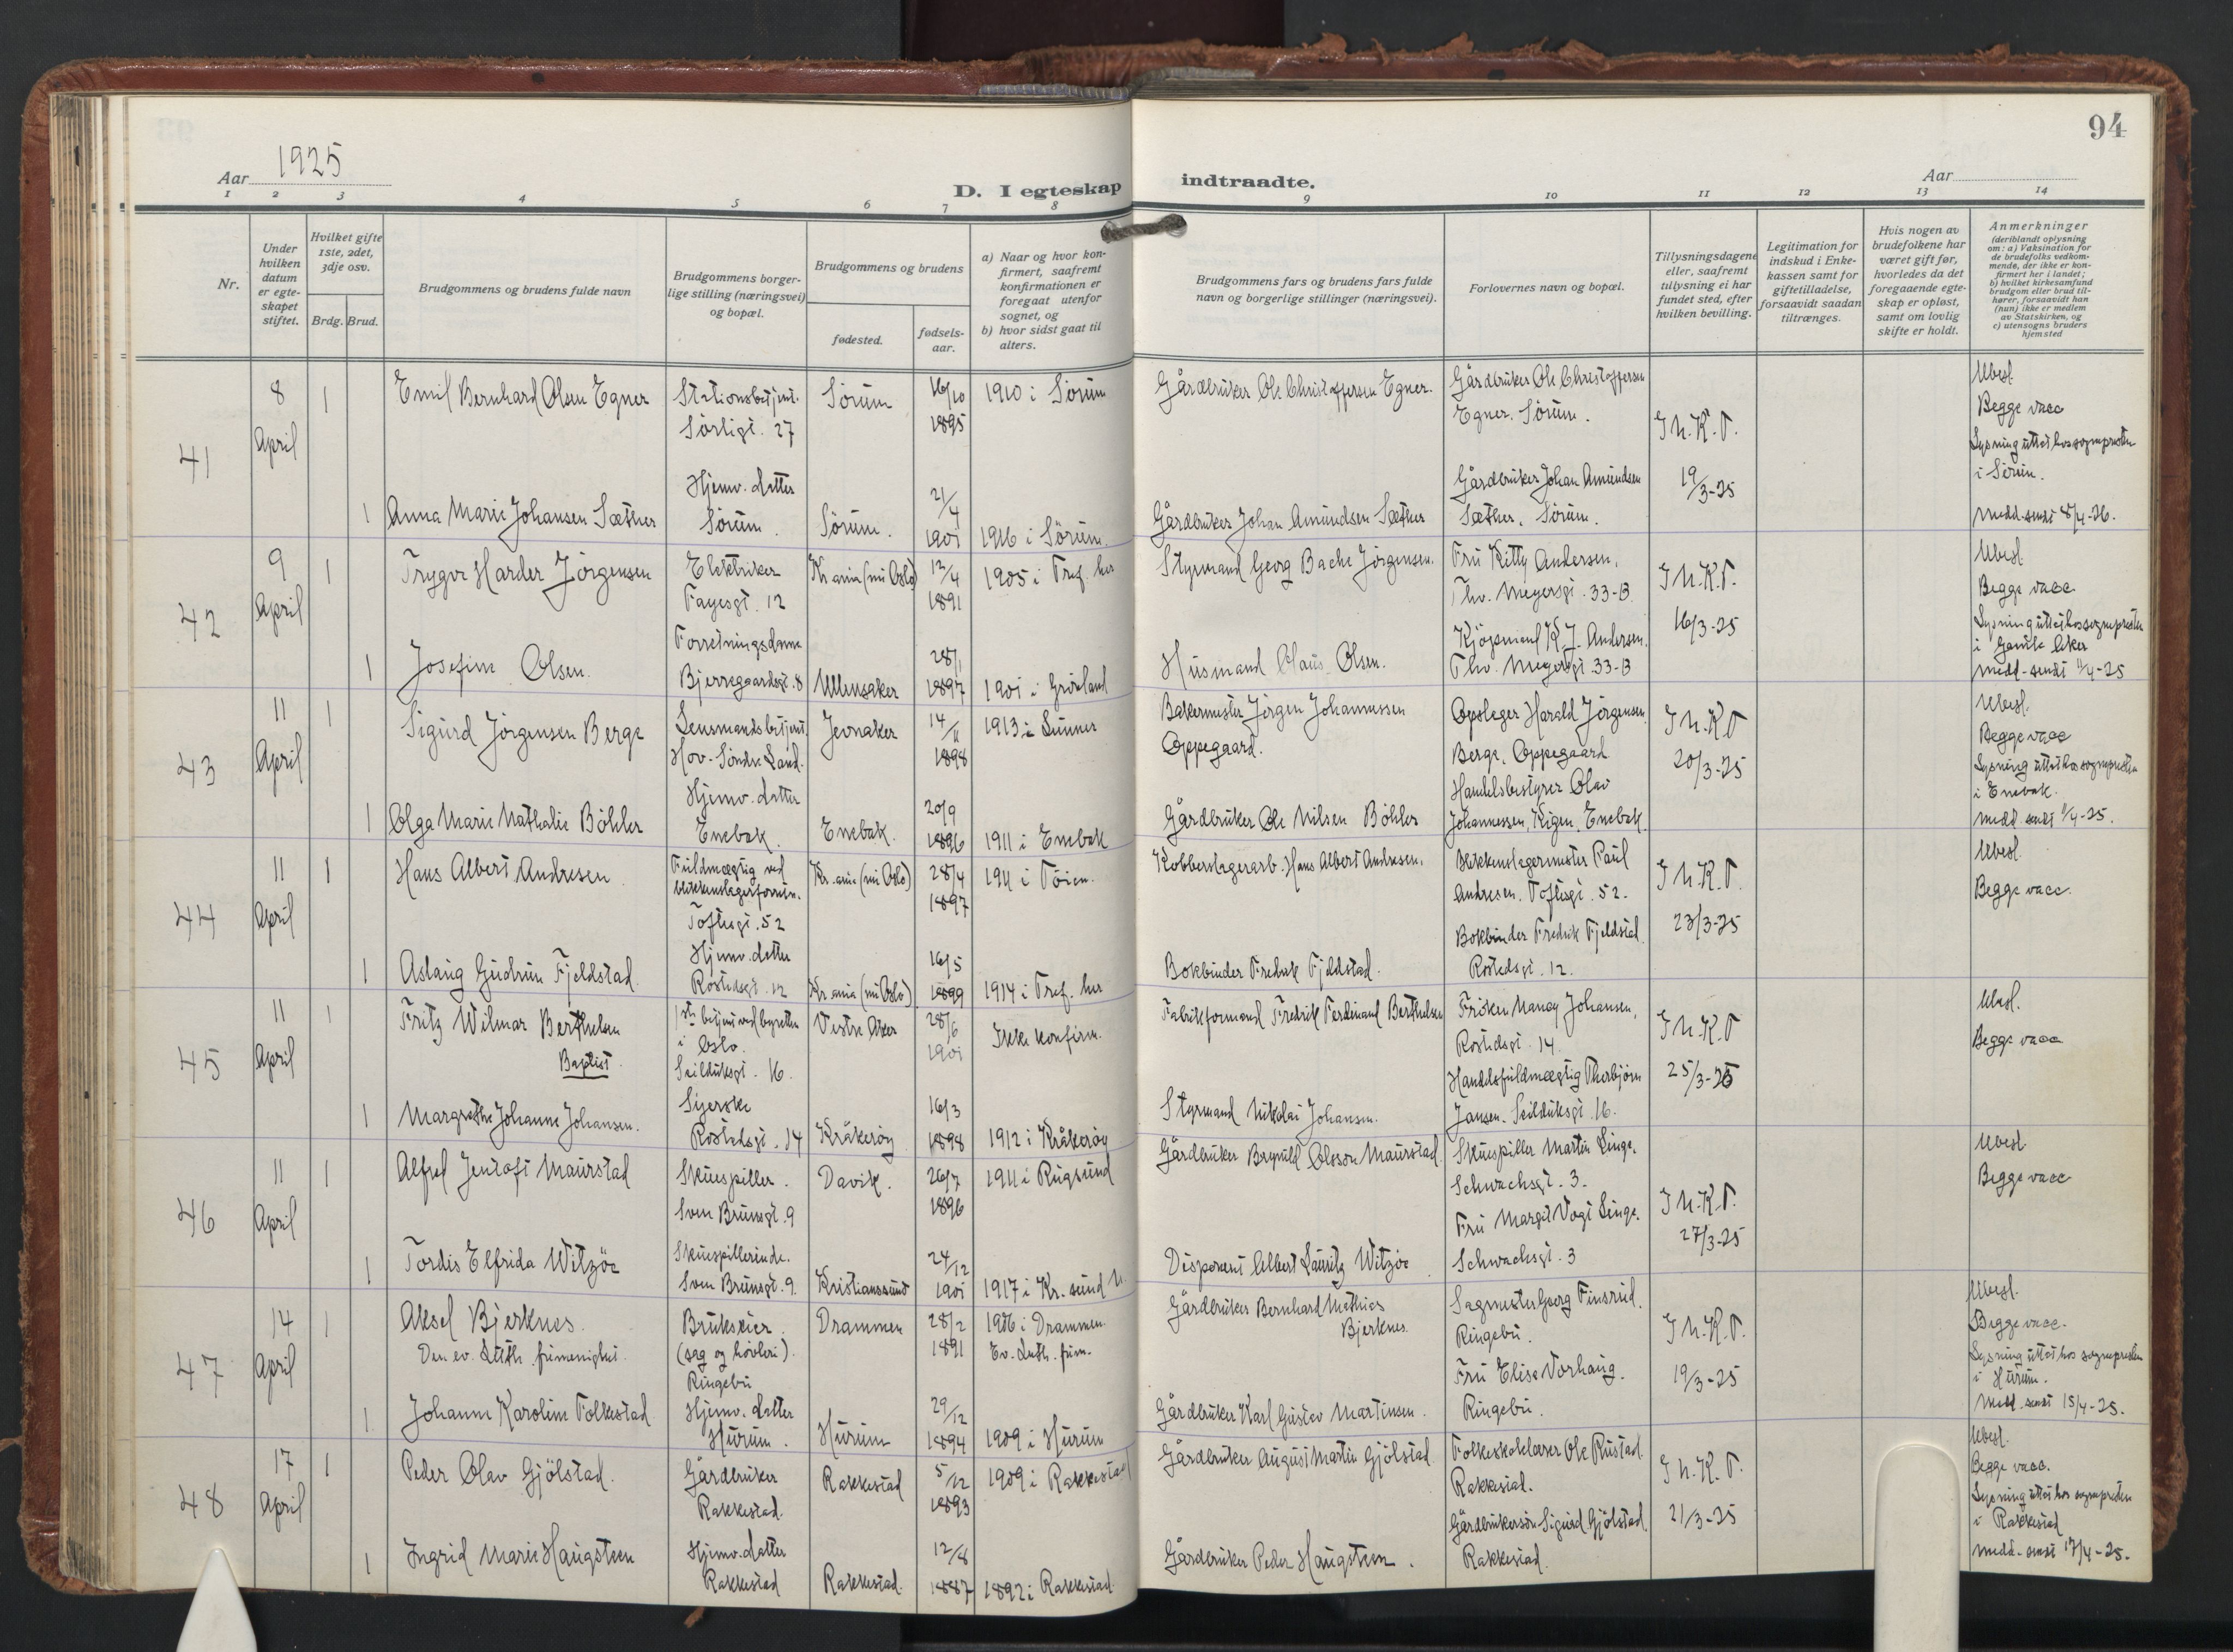 94
Aar 1925
D. I egteskap indtraadte.
Aar
1 2 3 4 5 6 7 8 9 10 11 12 13 14
Nr.
Under hvilken datum er egteskapet stiftet.
Hvilket gifte 1ste, 2det, 3dje osv.
Brdg. Brud.
Brudgommens og brudens fulde navn
Brudgommens borgerlige stilling (næringsvei) og bopæl.
Brudgommens og brudens
fødested.
fødselsaar.
a) Naar og hvor konfirmert, saafremt konfirmationen er foregaat utenfor sognet, og
b) hvor sidst gaat til alters.
Brudgommens fars og brudens fars fulde navn og borgerlige stillinger (næringsvei).
Forlovernes navn og bopæl.
Tillysningsdagene eller, saafremt tillysning ei har fundet sted, efter hvilken bevilling.
Legitimation for indskud i Enkekassen samt for giftetilladelse, forsaavidt saadan tiltrænges.
Hvis nogen av brudefolkene har været gift før, hvorledes da det foregaaende egteskap er opløst, samt om lovlig skifte er holdt.
Anmerkninger
(deriblandt oplysning om: a) Vaksination for de brudefolks vedkommende, der ikke er konfirmert her i landet; b) hvilket kirkesamfund brudgom eller brud tilhører, forsaavidt han (hun) ikke er medlem av Statskirken, og c) utensogns bruders hjemsted
41
8 April
1 Emil Bernhard Olsen Egner
Stationsbetjent. Sørligt. 27
Sörum 16/10 1895
1910 i Sörum
Gårdbruker Ole Christoffersen Egner.
Gårdbruker Ole Christoffersen Egner. Sörum.
I N.K.T. 19/3-25
Ubesl. Begge vacc
Lysning uttat hos sognepresten i Sörum.
medd. sendt 8/4-26.
1 Anna Marie Johansen Sæther
Hjemv. datter Sörum.
Sörum. 21/4 1901
1916 i Sörum.
Gårdbruker Johan Amundsen Sæther
Gårdbruker Johan Amundsen Sæther. Sörum.
42
9 April
1 Trygve Harder Jörgensen
Elektriker Fayesgt. 12
Kr.ania (nu Oslo) 12/4 1891
1905 i Tref. her
Styrmand Georg Bache Jörgensen.
Fru Kitty Andersen, Thv. Meyersgt. 33-B
I N.K.T. 16/3-25
Ubesl. Begge vacc.
Lysning uttat hos sognepresten i Gamle Aker
medd. sendt 11/4-25
1 Josefine Olsen.
Forretningsdame Bjerregaardsgt. 8
Ullensaker 28/1 1897
1901 i Grönland
Husmand Claus Olsen.
Kjøpmand K. J. Andersen. Thv. Meyersgt. 33-B
43
11 April
1 Sigurd Jörgensen Berge
Lensmandsbetjent, Hov. Söndre Land.
Jevnaker 14/11 1898
1913 i Lunner
Bakermester Jörgen Johannessen Oppegaard.
Opsleger Harald Jörgensen Berge. Oppegaard
I N.K.T 20/3-25
Ubesl. Begge vacc
Lysning uttat hos sognepresten i Enebak.
medd. sendt 11/4-25.
1 Olga Marie Nathalie Böhler
Hjemv. datter Enebak.
Enebak. 20/9 1896
1911 i Enebak
Gårdbruker Ole Nilsen Böhler
Handelsbestyrer Olav Johannessen, Rigen, Enebak.
44
11 April
1 Hans Albert Andresen
Fuldmægtig ved blikkenslagerforretn. Toftesgt. 52
Kr.ania (nu Oslo) 28/4 1897
1911 i Töien.
Kobberslagerarb. Hans Albert Andresen.
Blikkenslagermester Paul Andresen. Toftesgt. 52.
I N.K.T. 23/3-25
Ubesl. Begge vacc.
1 Aslaug Gudrun Fjeldstad.
Hjemv. datter Rostedsgt. 12
Kr.ania (nu Oslo) 16/5 1899
1914 i Tref. her
Bokbinder Fredrik Fjeldstad.
Bokbinder Fredrik Fjeldstad. Rostedsgt. 12.
45
11 April
1 Fritz Wilmar Berthelsen
Baptist.
1ste betjent ved byretten i Oslo. Seilduksgt. 16.
Vestre Aker 28/6 1901
Ikke konfirm.
Fabrikformand Fredrik Ferdinand Berthelsen
Fröken Nancy Johansen, Rostedsgt. 14.
I N.K.T 25/3-25
Ubesl. Begge vacc
1 Margrethe Johanne Johansen.
Syerske Rostedsgt. 14
Kråkeröy 16/3 1898
1912 i Kråkeröy
Styrmand Nikolai Johansen.
Handelsfuldmægtig Thorbjörn Jansen. Seilduksgt. 16.
46
11 April
1 Alfred Jentoft Maurstad
Skuespiller. Sven Brunsgt. 9
Davik. 26/7 1896
1911 i Rugsund
Gårdbruker Brynild Olsson Maurstad.
Skuespiller Martin Linge. Schwachsgt. 3.
I N.K.T. 27/3-25
Ubesl. Begge vacc
1 Tordis Elfrida Witzöe
Skuespillerinde. Sven Brunsgt. 9.
Kristianssund 24/12 1901
1917 i Kr.sund N.
Disponent Albert Lauritz Witzöe
Fru Margit Vogt Linge. Schwachsgt. 3
47
14 April
1 Aksel Bjerknes.
Den ev. Luth. frimenighet.
Brukseier. (sag og hövleri). Ringebu
Drammen 28/2 1891
1906 i Drammen. Ev. Luth. frim.
Gårdbruker Bernhard Mathias Bjerknes.
Sagmester Georg Finsrud. Ringebu.
I N.K.T. 19/3-25
Ubesl. Begge vacc.
Lysning uttat hos sognepresten i Hurum.
Medd. sendt 15/4-25.
1 Johanne Karoline Folkestad
Hjemv. datter Hurum.
Hurum 29/12 1894
1909 i Hurum
Gårdbruker Karl Gustav Martinsen.
Fru Elise Vorhaug. Ringebu.
48
17 April
1 Peder Olav Gjölstad.
Gårdbruker Rakkestad.
Rakkestad 5/12 1893
1909 i Rakkestad
Gårdbruker August Martin Gjölstad.
Folkeskolelærer Ole Rustad. Rakkestad.
I N.K.T. 21/3-25
Ubesl. Begge vacc.
Lysning uttat hos sognepresten i Rakkestad
medd. sendt 17/4-25.
1 Ingrid Marie Haugsteen
Hjemv. datter Rakkestad
Rakkestad. 12/8 1887
1892 i Rakkestad.
Gårdbruker Peder Haugsteen.
Gårdbrukersön Sigurd Gjölstad. Rakkestad.